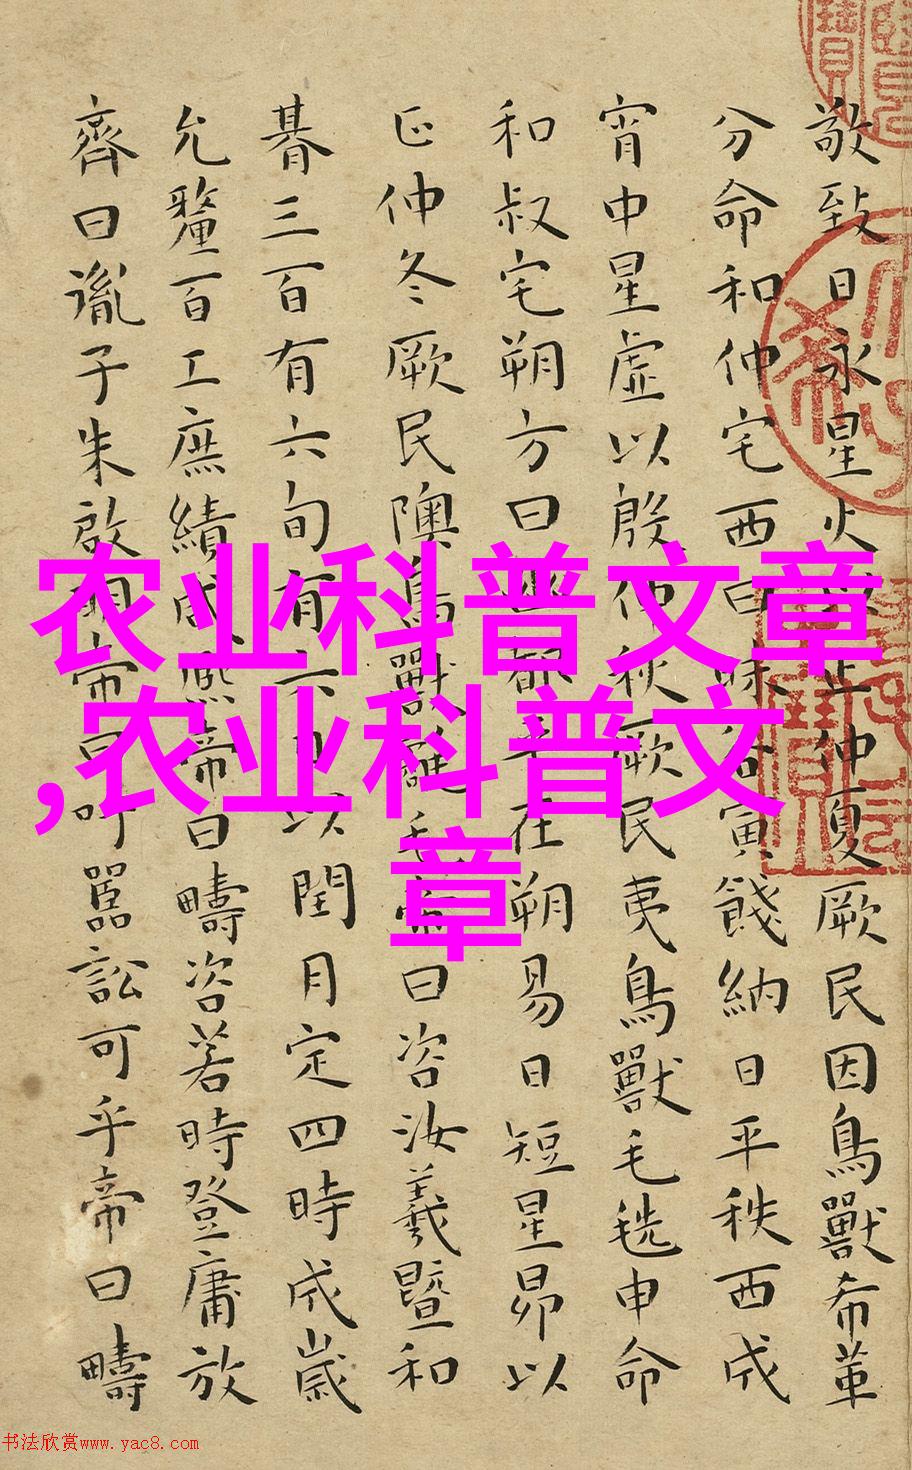 敬致日永星火正仲夏厥民因鳥獸希革
分命和仲宅西曰昧谷寅餞納日平秩西成
宵中星虛以殷仲秋厥民夷鳥獸毛毨申命
和叔宅朔方曰幽都平在朔易日短星昴以
正仲冬厥民隩鳥獸毛帝曰咨汝羲暨和
朞三百有六旬有六日以閏月定四時成歲
允釐百工庶績咸熙帝曰疇咨若時登庸放
齊曰胤子朱啟明帝曰吁嚚訟可乎帝曰疇
农业科普文章
,农业科普文
章
书法欣赏www.yac8.com